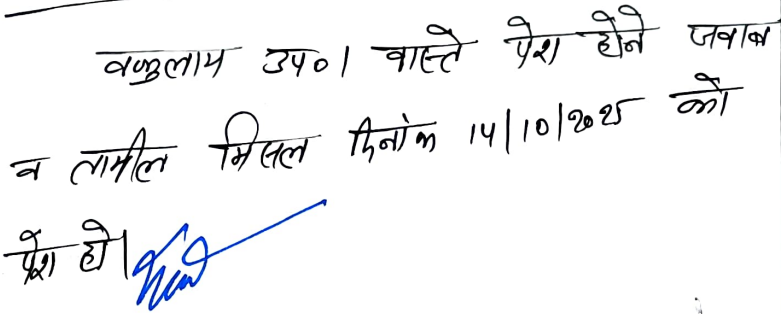 वकुलाय उप०। वास्ते पेश होने जवाब
व तामील मिसल दिनांक 14/10/2025 को
पेश हो।